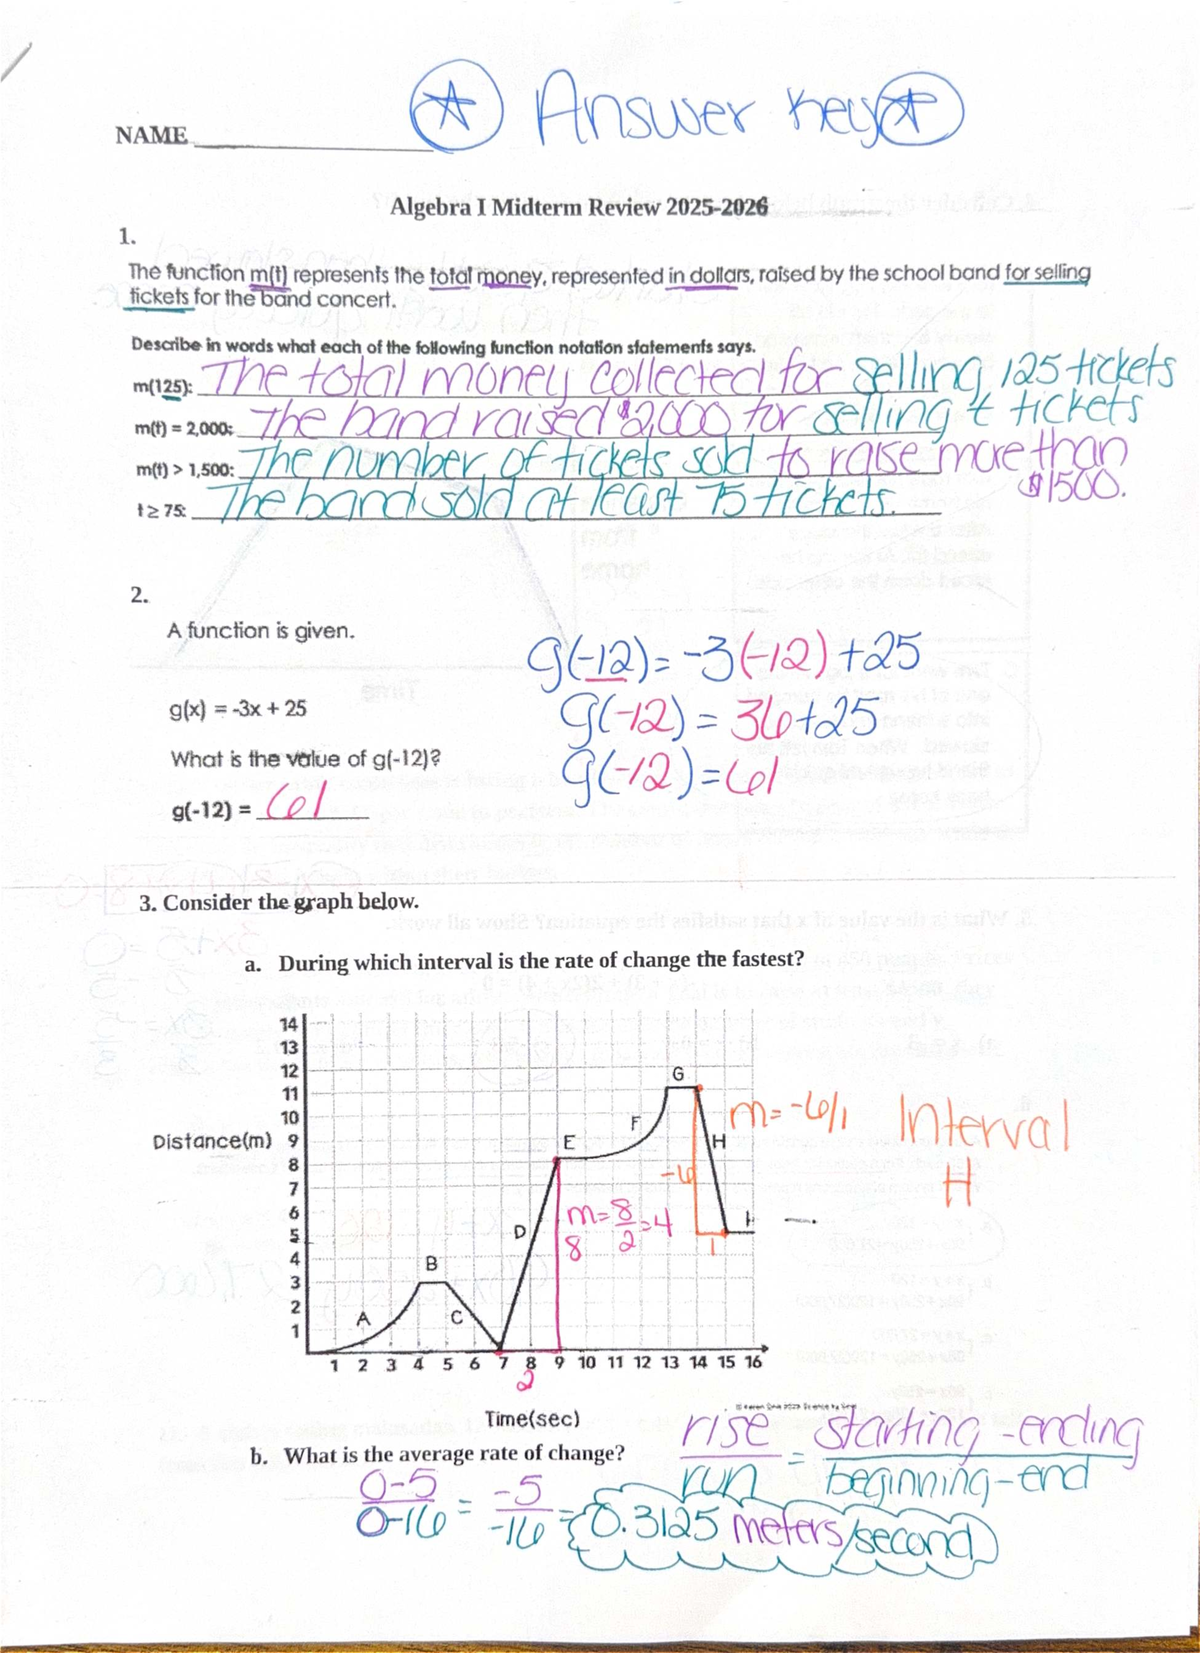 Answer Key
NAME
Algebra I Midterm Review 2025-2026
1.
The function m(t) represents the total money, represented in dollars, raised by the school band for selling
tickets for the band concert.
Describe in words what each of the following function notation statements says.
m(125): The total money collected for selling 125 tickets
m(t) = 2,000: The band raised $2,000 for selling t tickets
m(t) > 1,500: The number of tickets sold to raise more than
$1500.
t ≥ 75: The band sold at least 75 tickets.
2.
A function is given.
g(-12) = -3(-12) + 25
g(x) = -3x + 25
g(-12) = 36 + 25
What is the value of g(-12)?
g(-12) = 61
g(-12) = 61
3. Consider the graph below.
a. During which interval is the rate of change the fastest?
14
13
12
11
10
Distance(m) 9
8
7
6
5
4
3
2
1
A
B
C
D
E
F
G
H
I
m = -6/1
Interval
H
-6
1
m = 8/2 = 4
8
1 2 3 4 5 6 7 8 9 10 11 12 13 14 15 16
2
Time(sec)
rise/run = starting - ending/beginning - end
b. What is the average rate of change?
0-5/0-16 = -5/-16 = 0.3125 meters/second